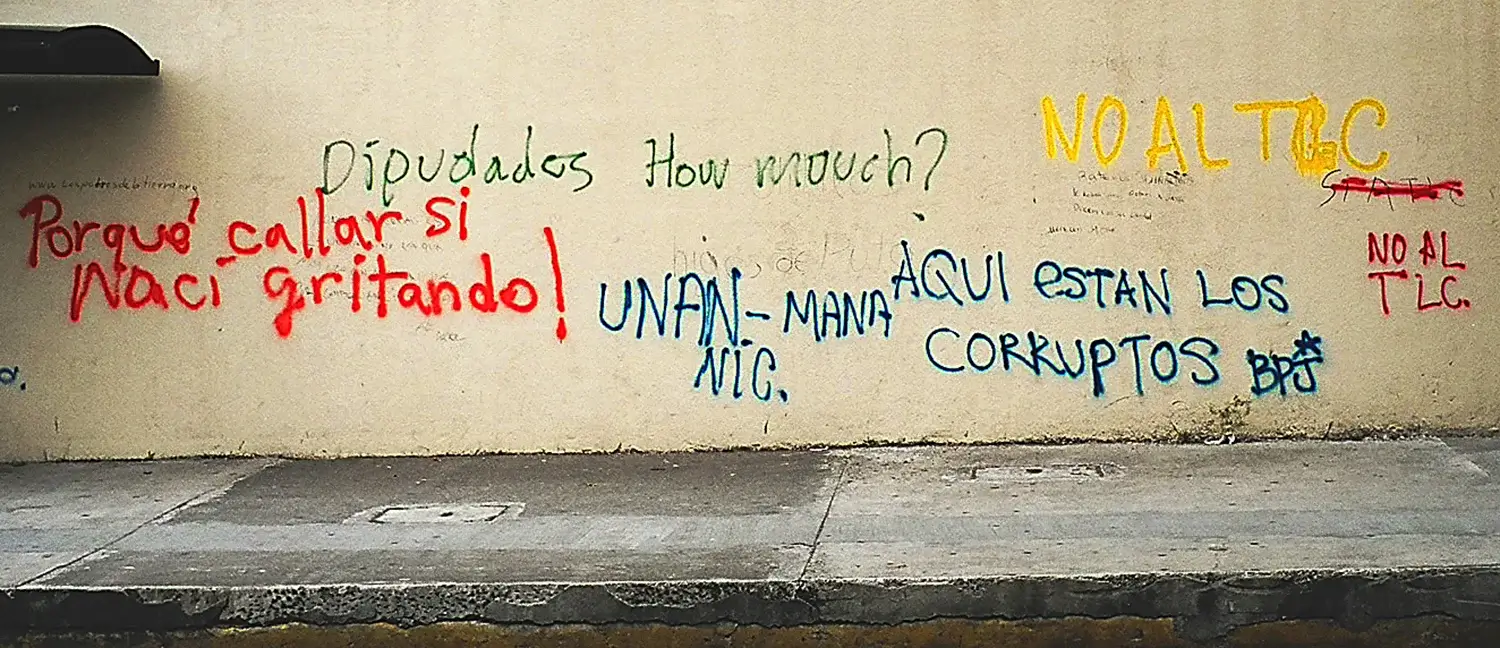 NO AL TLC
Dipudados How mouch?
Porqué callar si
Nací gritando!
NO AL
TLC.
hijos de Puta
AQUI ESTAN LOS
CORRUPTOS BPJ*
UNAN- MANA
NIC.